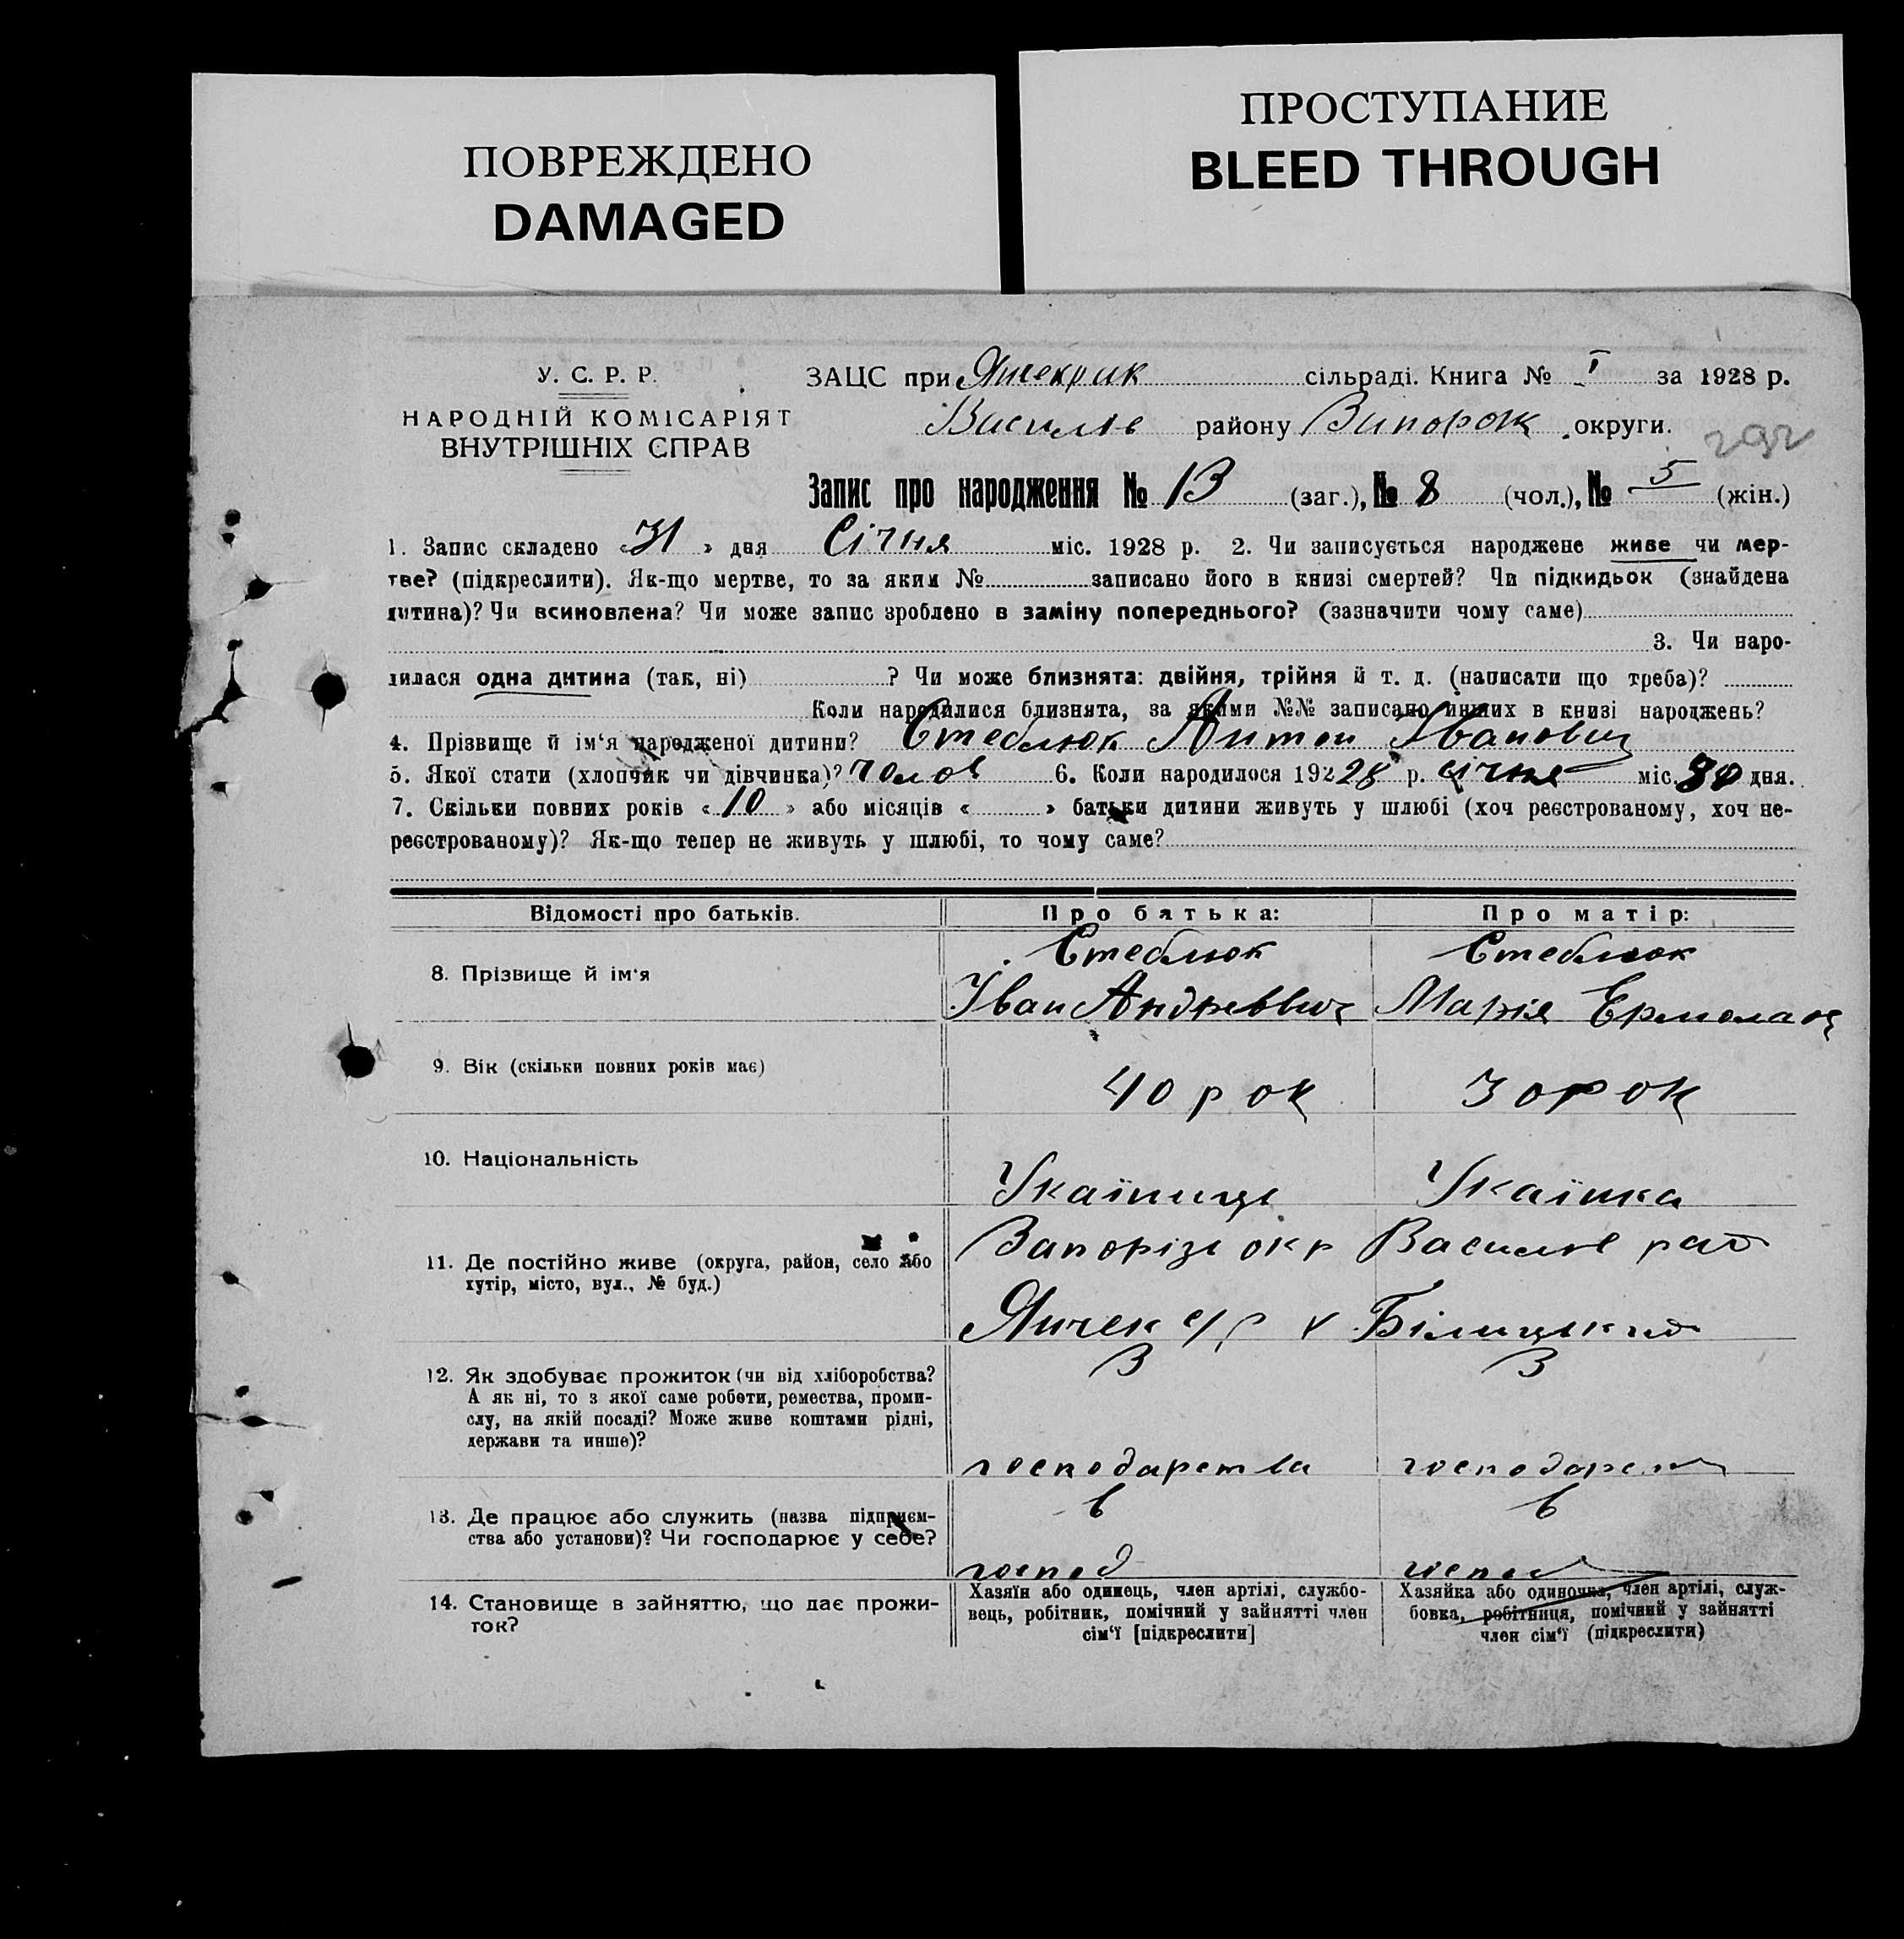 ПОВРЕЖДЕНО
DAMAGED
ПРОСТУПАНИЕ
BLEED THROUGH
У. С. Р. Р.
НАРОДНІЙ КОМІСАРІЯТ
ВНУТРІШНІХ СПРАВ
ЗАЦС при сільраді. Книга № I за 1928 р.
Василів району Запорож округи.
292
Запис про народження № 13 (заг.), № 8 (чол.), № 5 (жін.)
1. Запис складено «31» дня Січня міс. 1928 р. 2. Чи записується народжене живе чи мер-
тве? (підкреслити). Як-що мертве, то за яким № записано його в книзі смертей? Чи підкидьок (знайдена
дитина)? Чи всиновлена? Чи може запис зроблено в заміну попереднього? (зазначити чому саме)
3. Чи наро-
дилася одна дитина (так, ні) ? Чи може близнята: двійня, трійня й т. д. (написати що треба)?
Коли народилися близнята, за якими №№ записано инших в книзі народжень?
4. Прізвище й ім'я народженої дитини? Стеблюк Антон Іванович
5. Якої стати (хлопчик чи дівчинка)? чолов 6. Коли народилося 192 28 р. січня міс. 30 дня.
7. Скільки повних років «10» або місяців « » батьки дитини живуть у шлюбі (хоч реєстрованому, хоч не-
реєстрованому)? Як-що тепер не живуть у шлюбі, то чому саме?
Відомості про батьків. Про батька: Про матір:
Стеблюк Стеблюк
8. Прізвище й ім'я
Іван Андреевич Марія Ермолаев
9. Вік (скільки повних років має)
40 рок 30 рок
10. Національність
Украінец Украінка
11. Де постійно живе (округа, район, село або
хутір, місто, вул., № буд.)
Запорізь окр Василів рай
Янчек с/р х Біліцький
12. Як здобуває прожиток (чи від хліборобства?
А як ні, то з якої саме роботи, ремества, проми-
слу, на якій посаді? Може живе коштами рідні,
держави та инше)?
З З
господарства господарст
13. Де працює або служить (назва підприєм-
ства або установи)? Чи господарює у себе?
в в
господ господ
14. Становище в зайняттю, що дає прожи-
ток?
Хазяїн або одинець, член артілі, службо-
вець, робітник, помічний у зайнятті член
сім'ї [підкреслити]
Хазяйка або одиночка, член артілі, служ-
бовка, робітниця, помічний у зайнятті
член сім'ї (підкреслити)